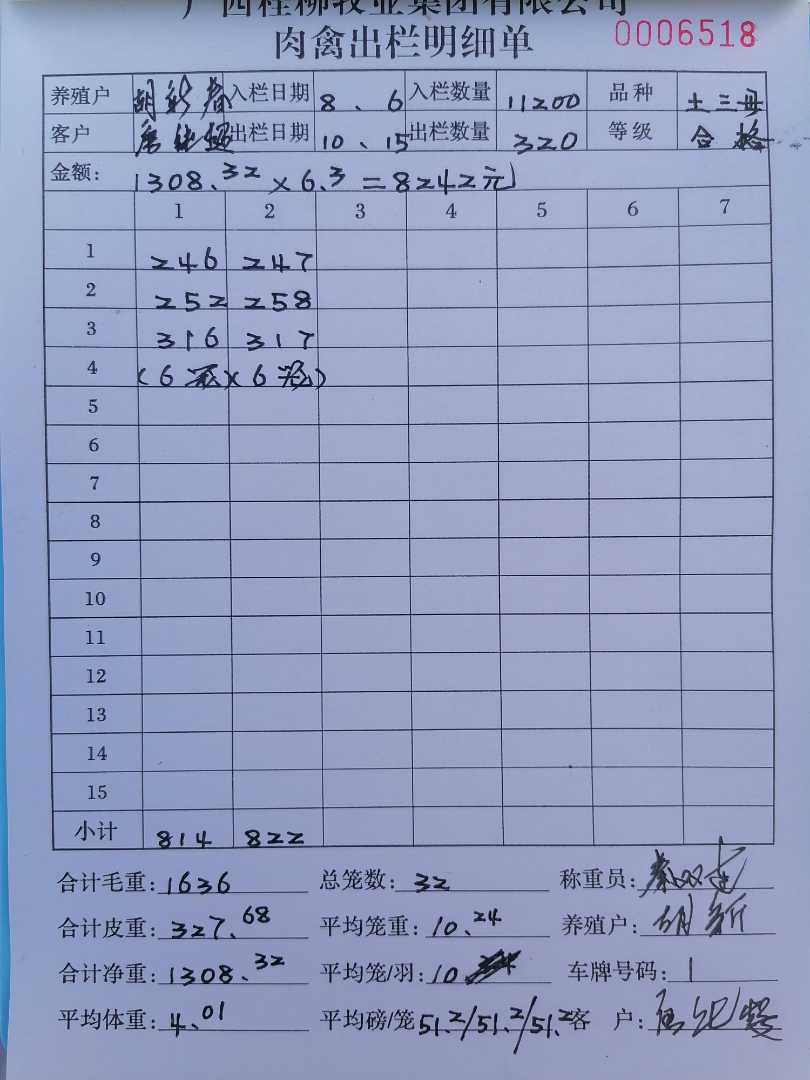 广西桂柳牧业集团有限公司
肉禽出栏明细单 0006518
养殖户 胡新春 入栏日期 8、6 入栏数量 11200 品种 土三毋
客户 出栏日期 10、15 出栏数量 320 等级 合格
金额: 1308.32×6.3=8242元
1 2 3 4 5 6 7
1 246 247
2 252 258
3 316 317
4 (6笼×6笼)
5
6
7
8
9
10
11
12
13
14
15
小计 814 822
合计毛重: 1636 总笼数: 32 称重员:
合计皮重: 327.68 平均笼重: 10.24 养殖户: 胡新
合计净重: 1308.32 平均笼/羽: 10 车牌号码: 1
平均体重: 4.01 平均磅/笼 51.2/51.2/51.2 客 户: